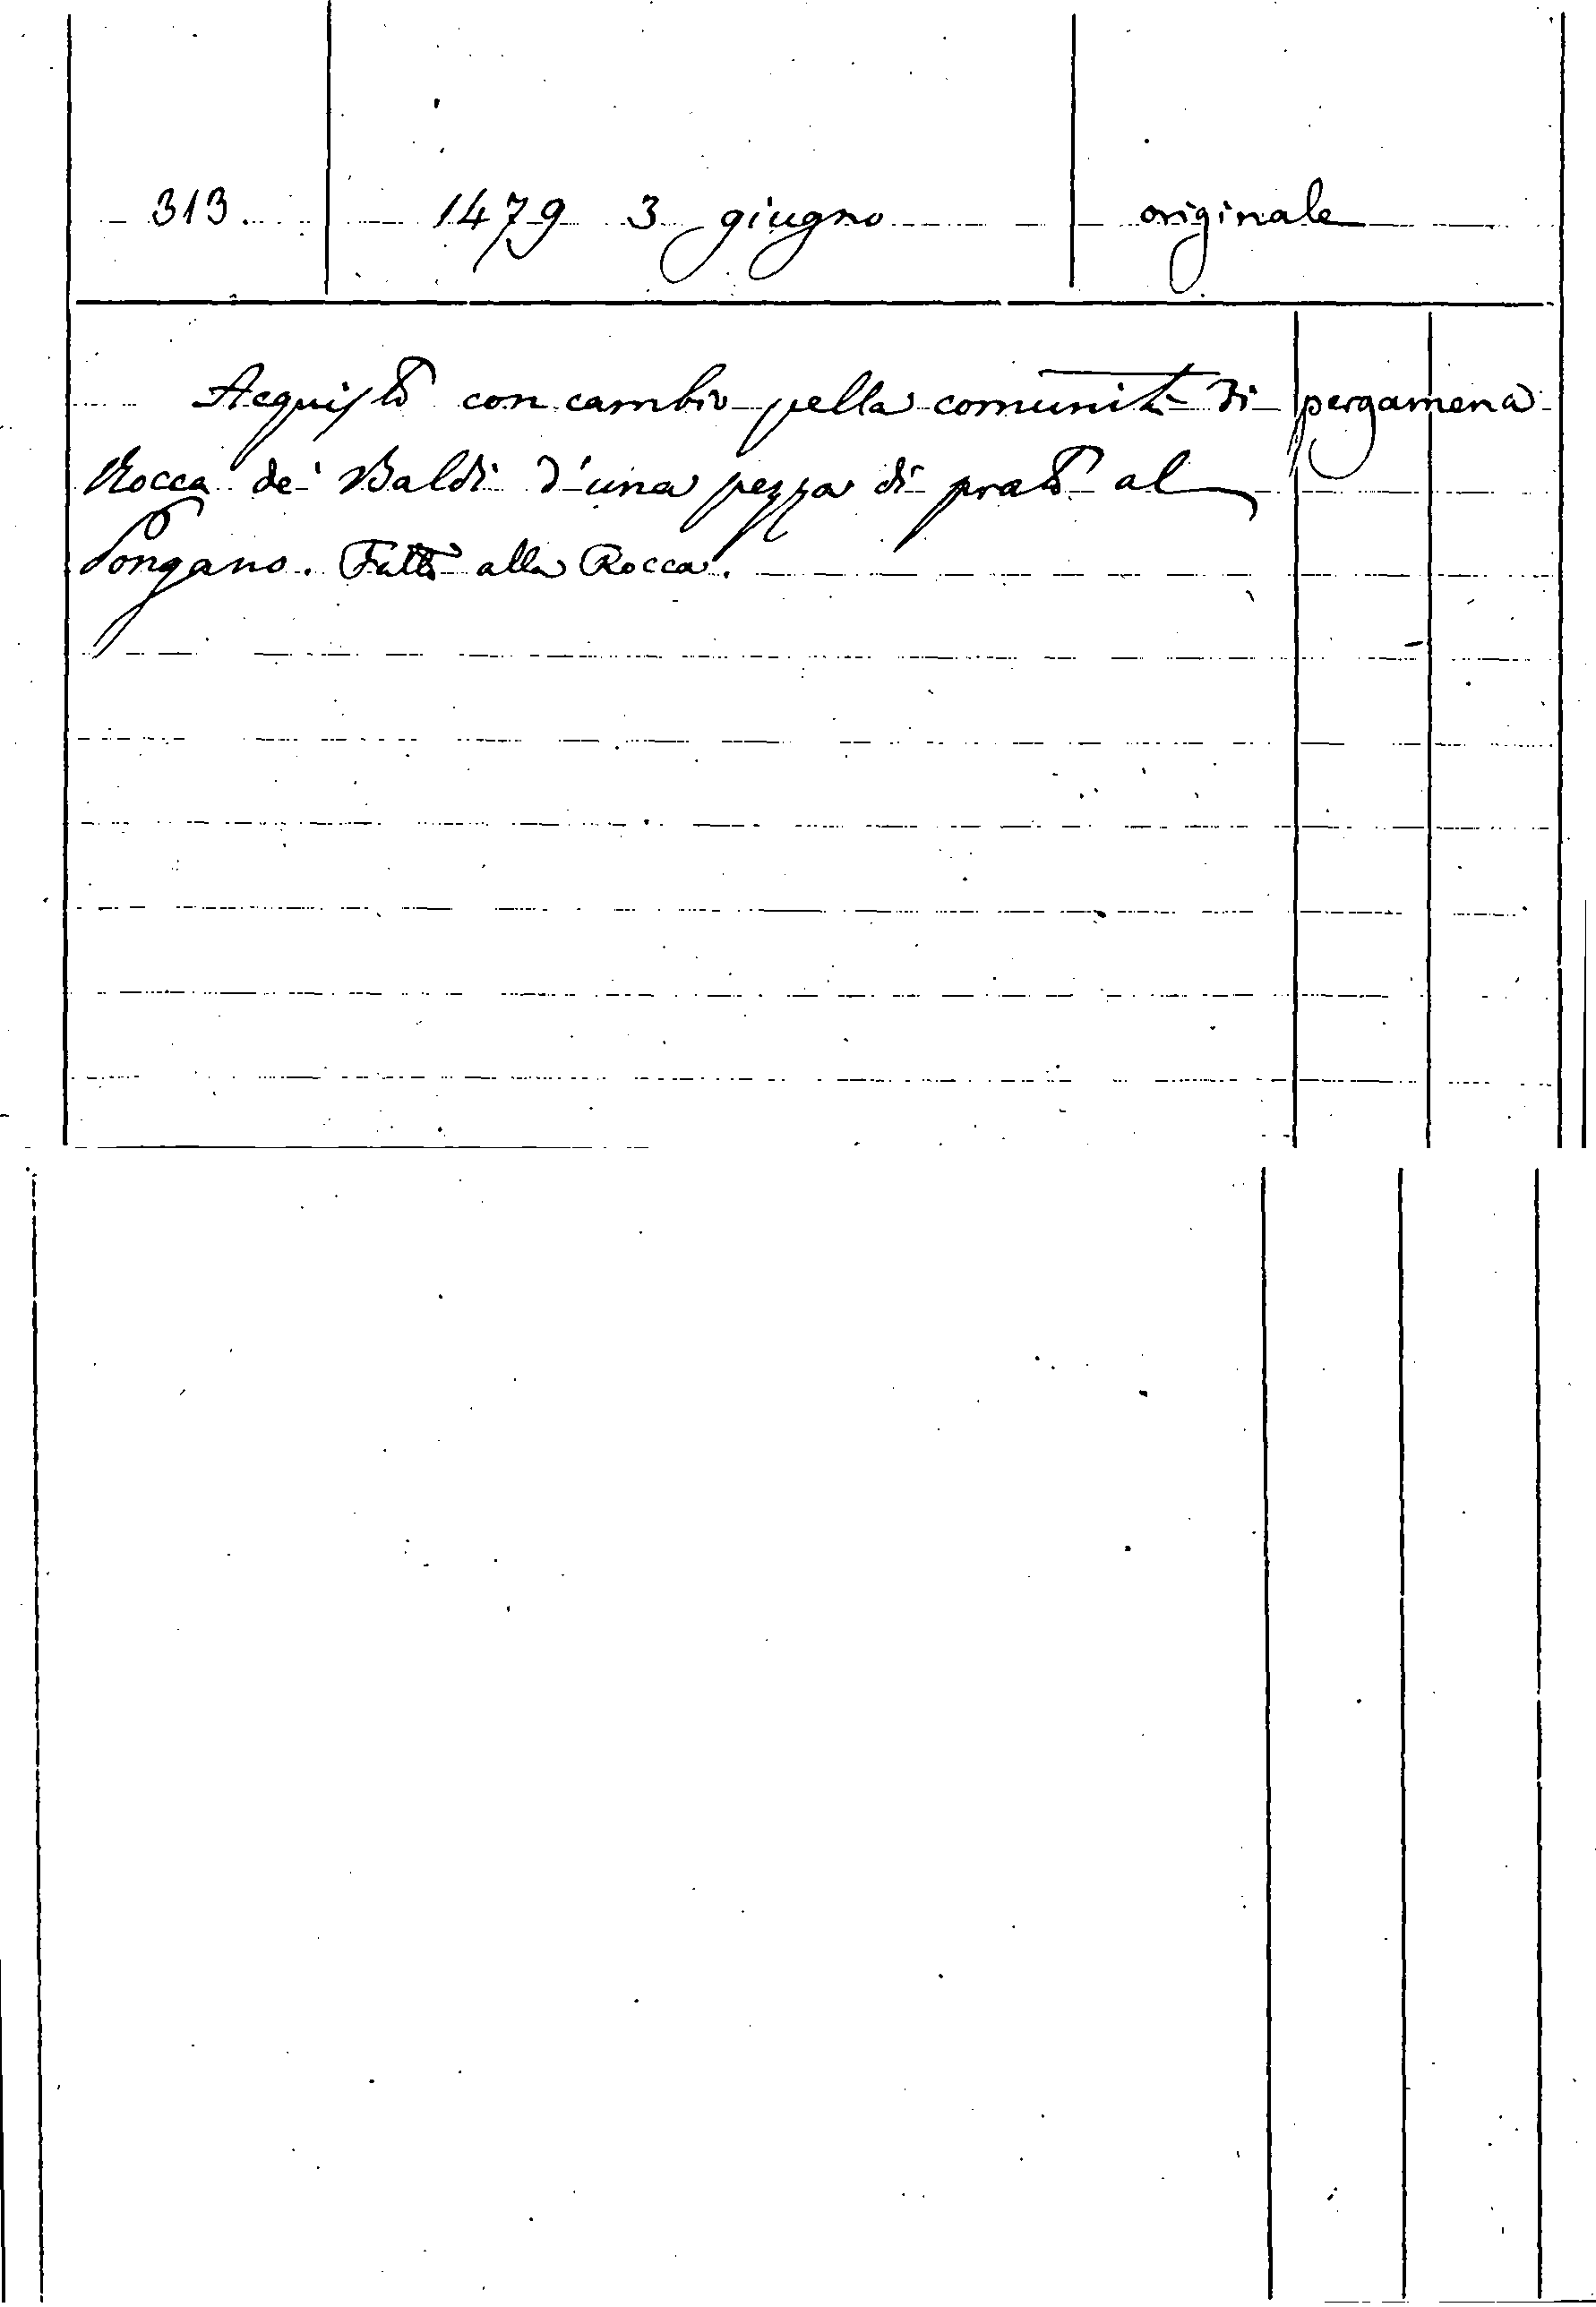 313. 1479 3 giugno originale
Acquisto con cambio pella comunità di pergamena
Rocca de' Baldi d'una pezza di prato al
Pongano. Fatto alla Rocca.